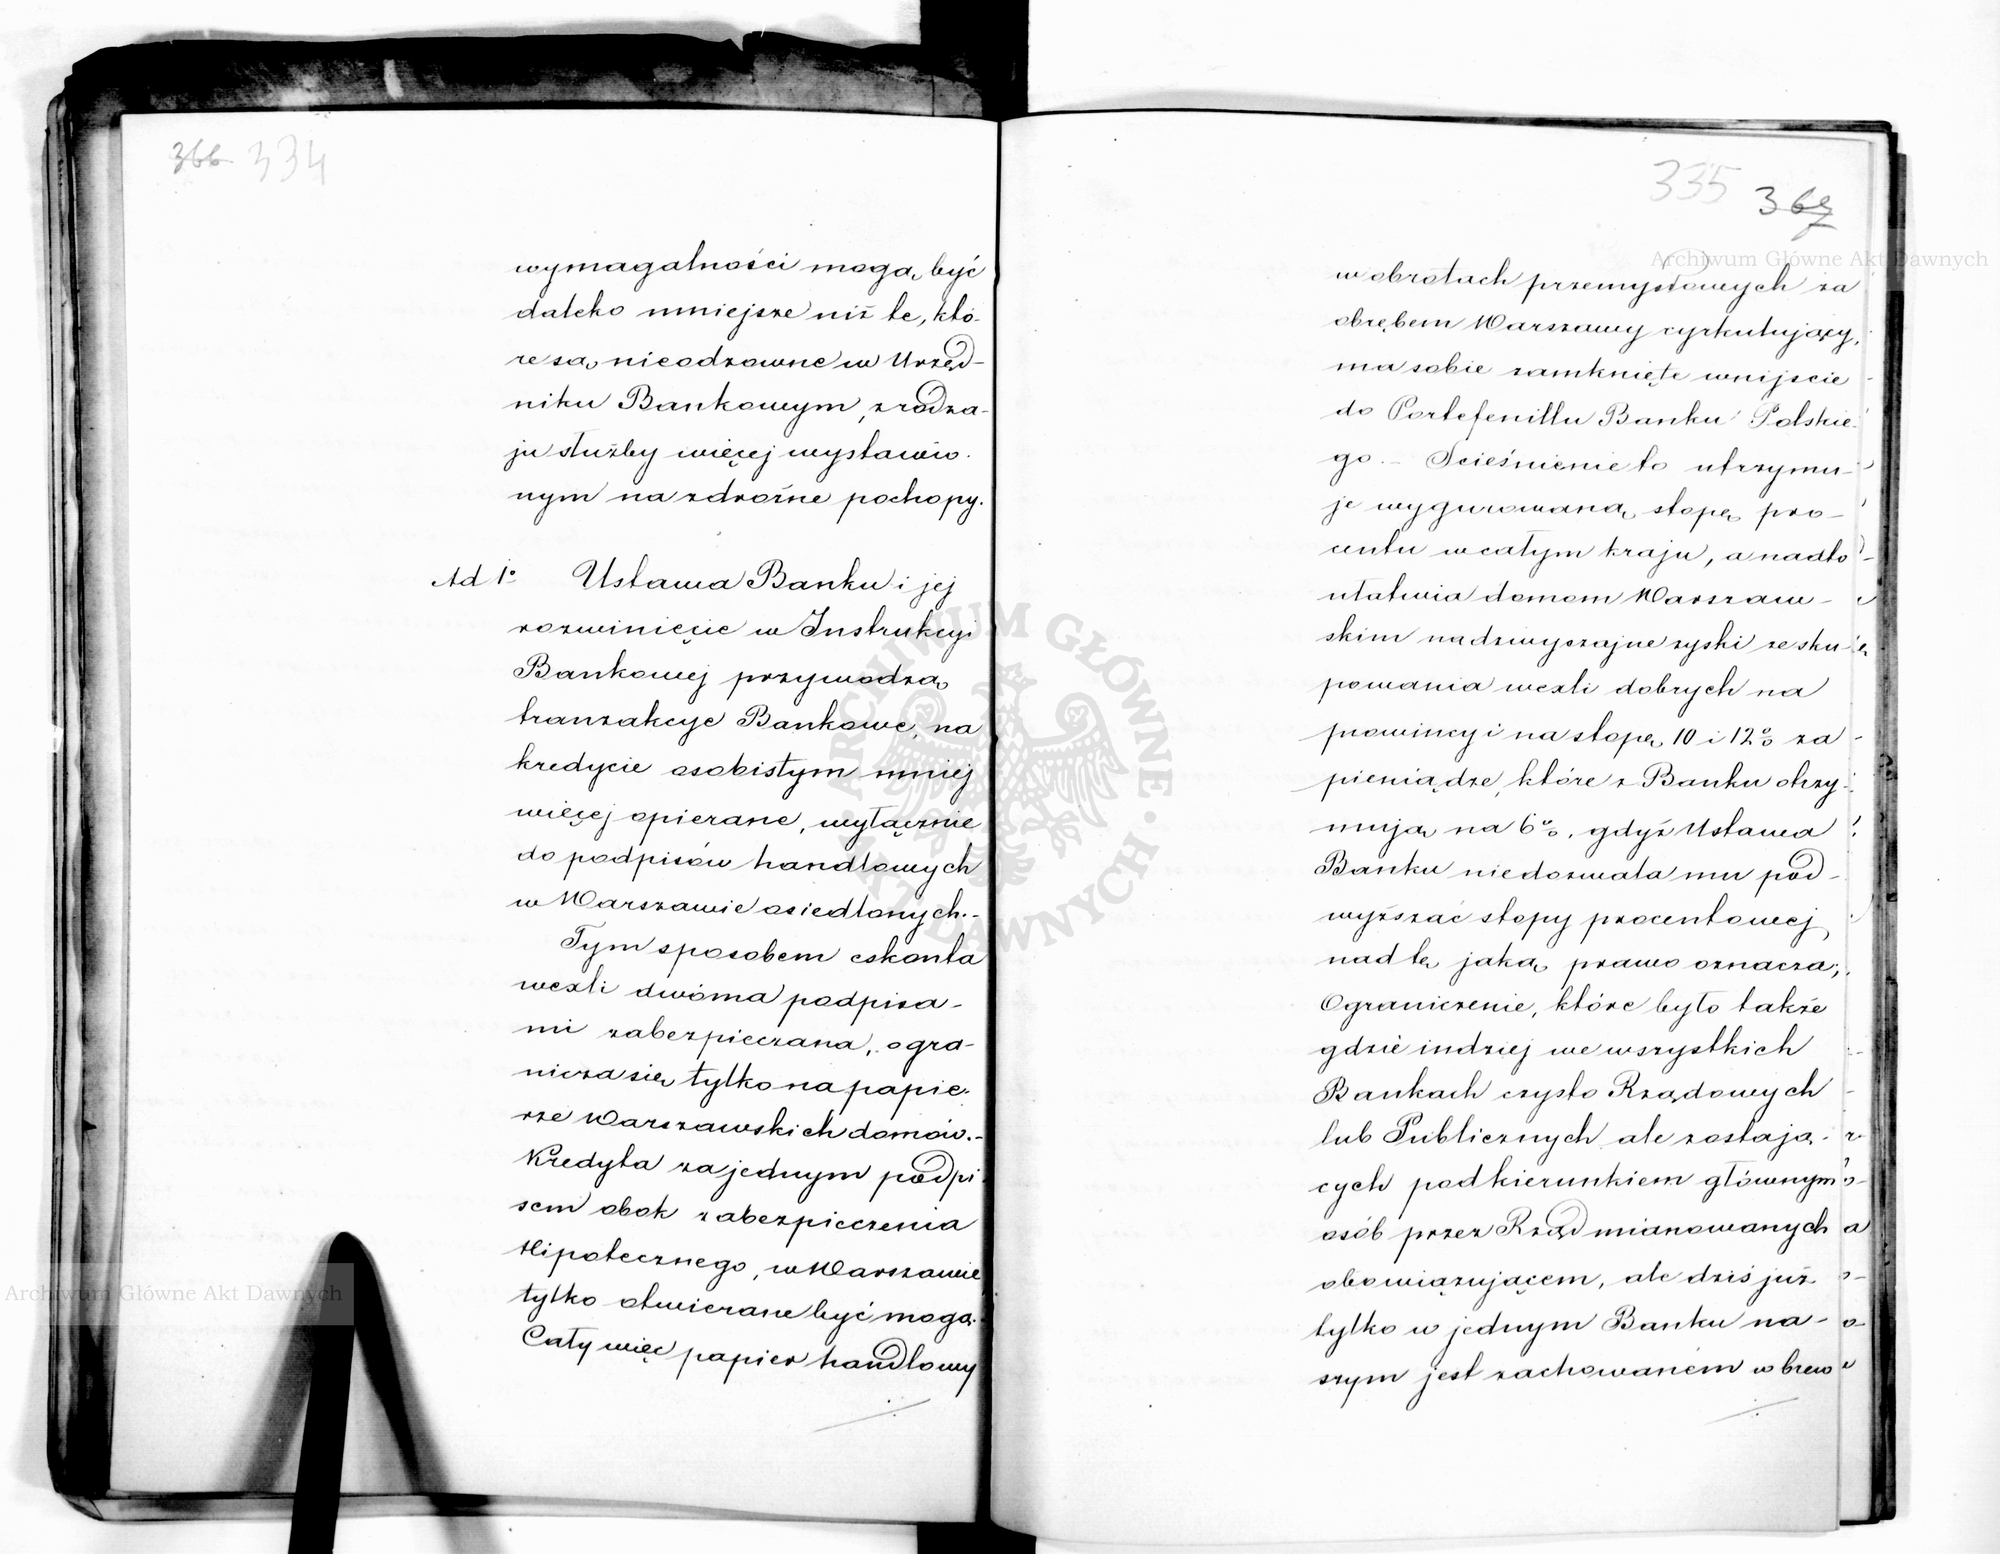 366 334
wymagalności mogą być
daleko mniejsze niż te, któ-
re są nieodzowne w Urzęd-
niku Bankowym, z rodza-
ju służby więcej wystawio-
nym na zdrożne pochopy.
Ad 1º Ustawa Banku i jej
rozwinięcie w Instrukcyi
Bankowej przywodzą
tranzakcye Bankowe, na
kredycie osobistym mniej
więcej opierane, wyłącznie
do podpisów handlowych
w Warszawie osiedlonych.-
Tym sposobem eskonta
wexli dwóma podpisa-
mi zabezpieczana, ogra-
nicza się tylko na papie-
rze Warszawskich domów.-
Kredyta za jednym podpi
sem obok zabezpieczenia
Hipotecznego, w Warszawie
tylko otwierane być mogą.
Cały więc papier handlowy
335 367
w obrotach przemysłowych za
obrębem Warszawy cyrkulujący,
ma sobie zamknięte wnijscie
do Portefeuillu Banku Polskie-
go.- Scieśnienie to utrzymu-
je wygurowaną stopę pro-
centu w całym kraju, a nadto
ułatwia domom Warszaw-
skim nadzwyczajne zyski ze sku-
powania wexli dobrych na
prowincyi na stopę 10 i 12% za
pieniądze, które z Banku otrzy-
mują na 6%, gdyż Ustawa
Banku niedozwala mu pod-
wyższać stopy procentowej,
nad tę jaką prawo oznacza;
Ograniczenie, które było także
gdzie indziej we wszystkich
Bankach czysto Rządowych
lub Publicznych ale zostają-
cych pod kierunkiem głównym
osób przez Rząd mianowanych
obowiązującem, ale dziś już
tylko w jednym Banku na-
szym jest zachowaném wbrew
Archiwum Główne Akt Dawnych
Archiwum Główne Akt Dawnych
ARCHIWUM GŁÓWNE AKT DAWNYCH